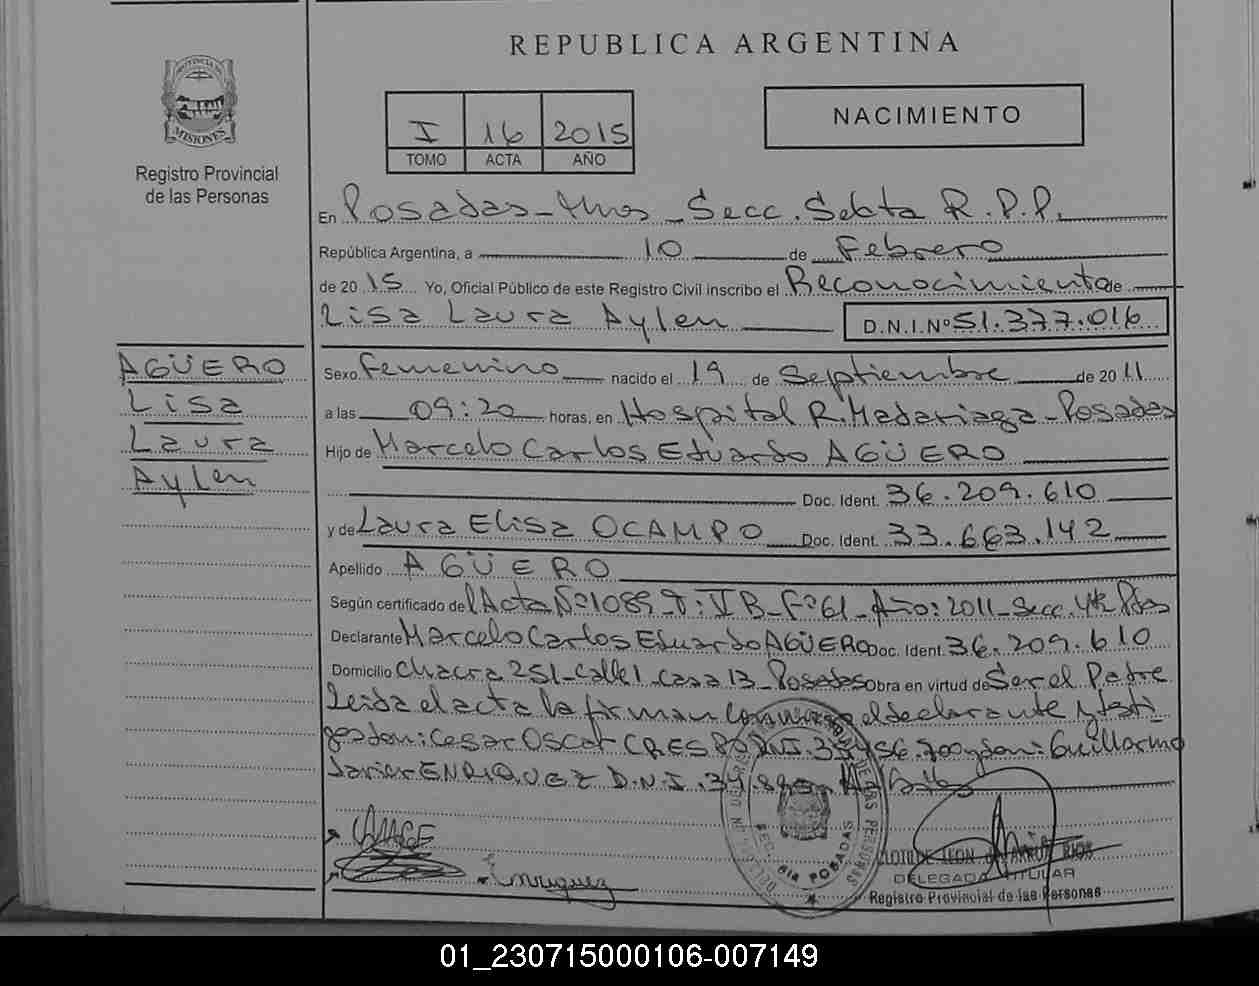 REPUBLICA ARGENTINA
PROVINCIA DE
MISIONES
Registro Provincial
de las Personas
I 16 2015
TOMO ACTA AÑO
NACIMIENTO
En Posadas - Mnes - Secc. Sexta R.P.P.
República Argentina, a 10 de Febrero
de 2015 Yo, Oficial Público de este Registro Civil inscribo el Reconocimiento de
Lisa Laura Aylen D.N.I.Nº 51.377.016
AGÜERO
Lisa
Laura
Aylen
Sexo Femenino nacido el 19 de Septiembre de 2011
a las 09:20 horas, en Hospital R. Madariaga - Posadas
Hijo de Marcelo Carlos Eduardo AGÜERO
Doc. Ident. 36.209.610
y de Laura Elisa OCAMPO Doc. Ident. 33.663.142
Apellido AGÜERO
Según certificado del Acta Nº 1089 - F: 61 - Año: 2011 - Secc. 4ta Pdas
Declarante Marcelo Carlos Eduardo AGÜERO Doc. Ident. 36.209.610
Domicilio Chacra 251 - calle 1 casa 13 - Posadas obra en virtud de Ser el Padre
Leida el acta la firman conmigo el declarante y testi
gos don: Cesar Oscar CRESPO D.N.I. y don: Guillermo
Javier ENRIQUEZ D.N.I. 34.
Enriquez
SEC. 6ta POSADAS
DELEGADA TITULAR
Registro Provincial de las Personas
01_230715000106-007149